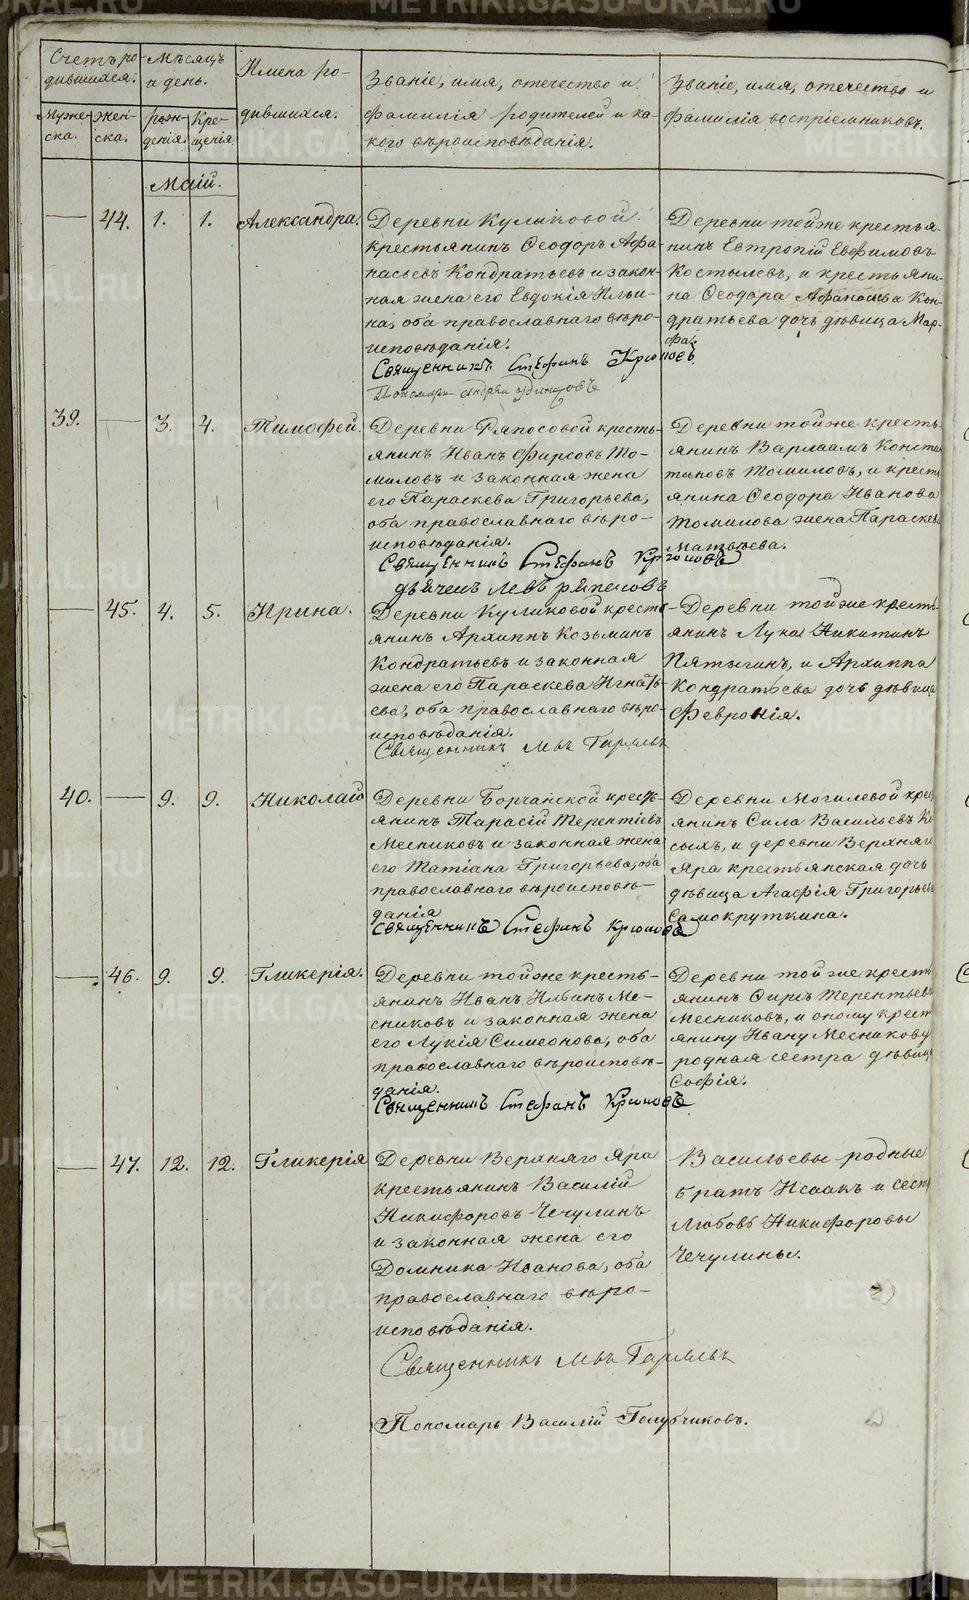 Счетъ ро-
дившихся.
Мѣсяцъ
и день.
Имена ро-
дившихся.
Званіе, имя, отечество и
фамилія родителей и ка-
кого вѣроисповѣданія.
Званіе, имя, отечество и
фамилія воспріемниковъ.
Муже-
ска.
Жен-
ска.
рож-
денія.
Кре-
щенія.
Маій.
44. 1. 1. Александра.
Деревни Куликовой
крестьянинъ Ѳеодоръ Афа-
насьевъ Кондратьевъ и закон-
ная жена его Евдокія Ильи-
на, оба православнаго вѣро-
исповѣданія.
Священникъ Стефанъ Крюковъ
Пономарь Андрей
Деревни тойже крестья-
нинъ Евтропій Евфимовъ
Костылевъ, и крестьяни-
на Ѳеодора Афанасьева Кон-
дратьева дочь дѣвица Мар-
фа.
39. 3. 4. Тимофей.
Деревни Рѣпосовой кресть-
янинъ Иванъ Фирсовъ То-
миловъ и законная жена
его Параскева Григорьева,
оба православнаго вѣро-
исповѣданія.
Священникъ Стефанъ Крюковъ
дьячекъ Левъ
Деревни тойже кресть-
янинъ Варлаамъ Конста
тиновъ Томиловъ, и кресть
янина Ѳеодора Иванова
Томилова жена Параскев
Матвѣева.
45. 4. 5. Ирина.
Деревни Куликовой кресть-
янинъ Архиппъ Козьминъ
Кондратьевъ и законная
жена его Параскева Игнать-
ева, оба православнаго вѣро-
исповѣданія.
Священникъ
Деревни тойже кресть-
янинъ Лука Никитинъ
Пятыгинъ, и Архиппа
Кондратьева дочь дѣвица
Февронія.
40. 9. 9. Николай
Деревни Борчанской кресть-
янинъ Тарасій Терентіевъ
Месниковъ и законная жена
его Татіана Григорьева, оба
православнаго вѣроисповѣ-
данія
Священникъ Стефанъ Крюковъ
Деревни Могилевой крес
янинъ Сила Васильевъ Ко
сыхъ, и деревни Верхняго
Яра крестьянская дочь
дѣвица Агафія Григорьев
Самокруткина.
46. 9. 9. Гликерія.
Деревни тойже кресть-
янинъ Иванъ Ильинъ Ме-
сниковъ и законная жена
его Лукія Симеонова, оба
православнаго вѣроисповѣ-
данія.
Священникъ Стефанъ Крюковъ
Деревни тойже кресть
янинъ Сиръ Терентьев
Месниковъ, и оному крест
янину Ивану Месникову
родная сестра дѣвиц
Софія.
47. 12. 12. Гликерія
Деревни Верхняго Яра
крестьянинъ Василій
Никифоровъ Чечулинъ
и законная жена его
Домника Иванова, оба
православнаго вѣро-
исповѣданія.
Священникъ
Пономарь Василій Голубчиковъ.
Васильевы родные
братъ Исаакъ и сест
Любовь Никифоровы
Чечулины.
METRIKI.GASO-URAL.RU